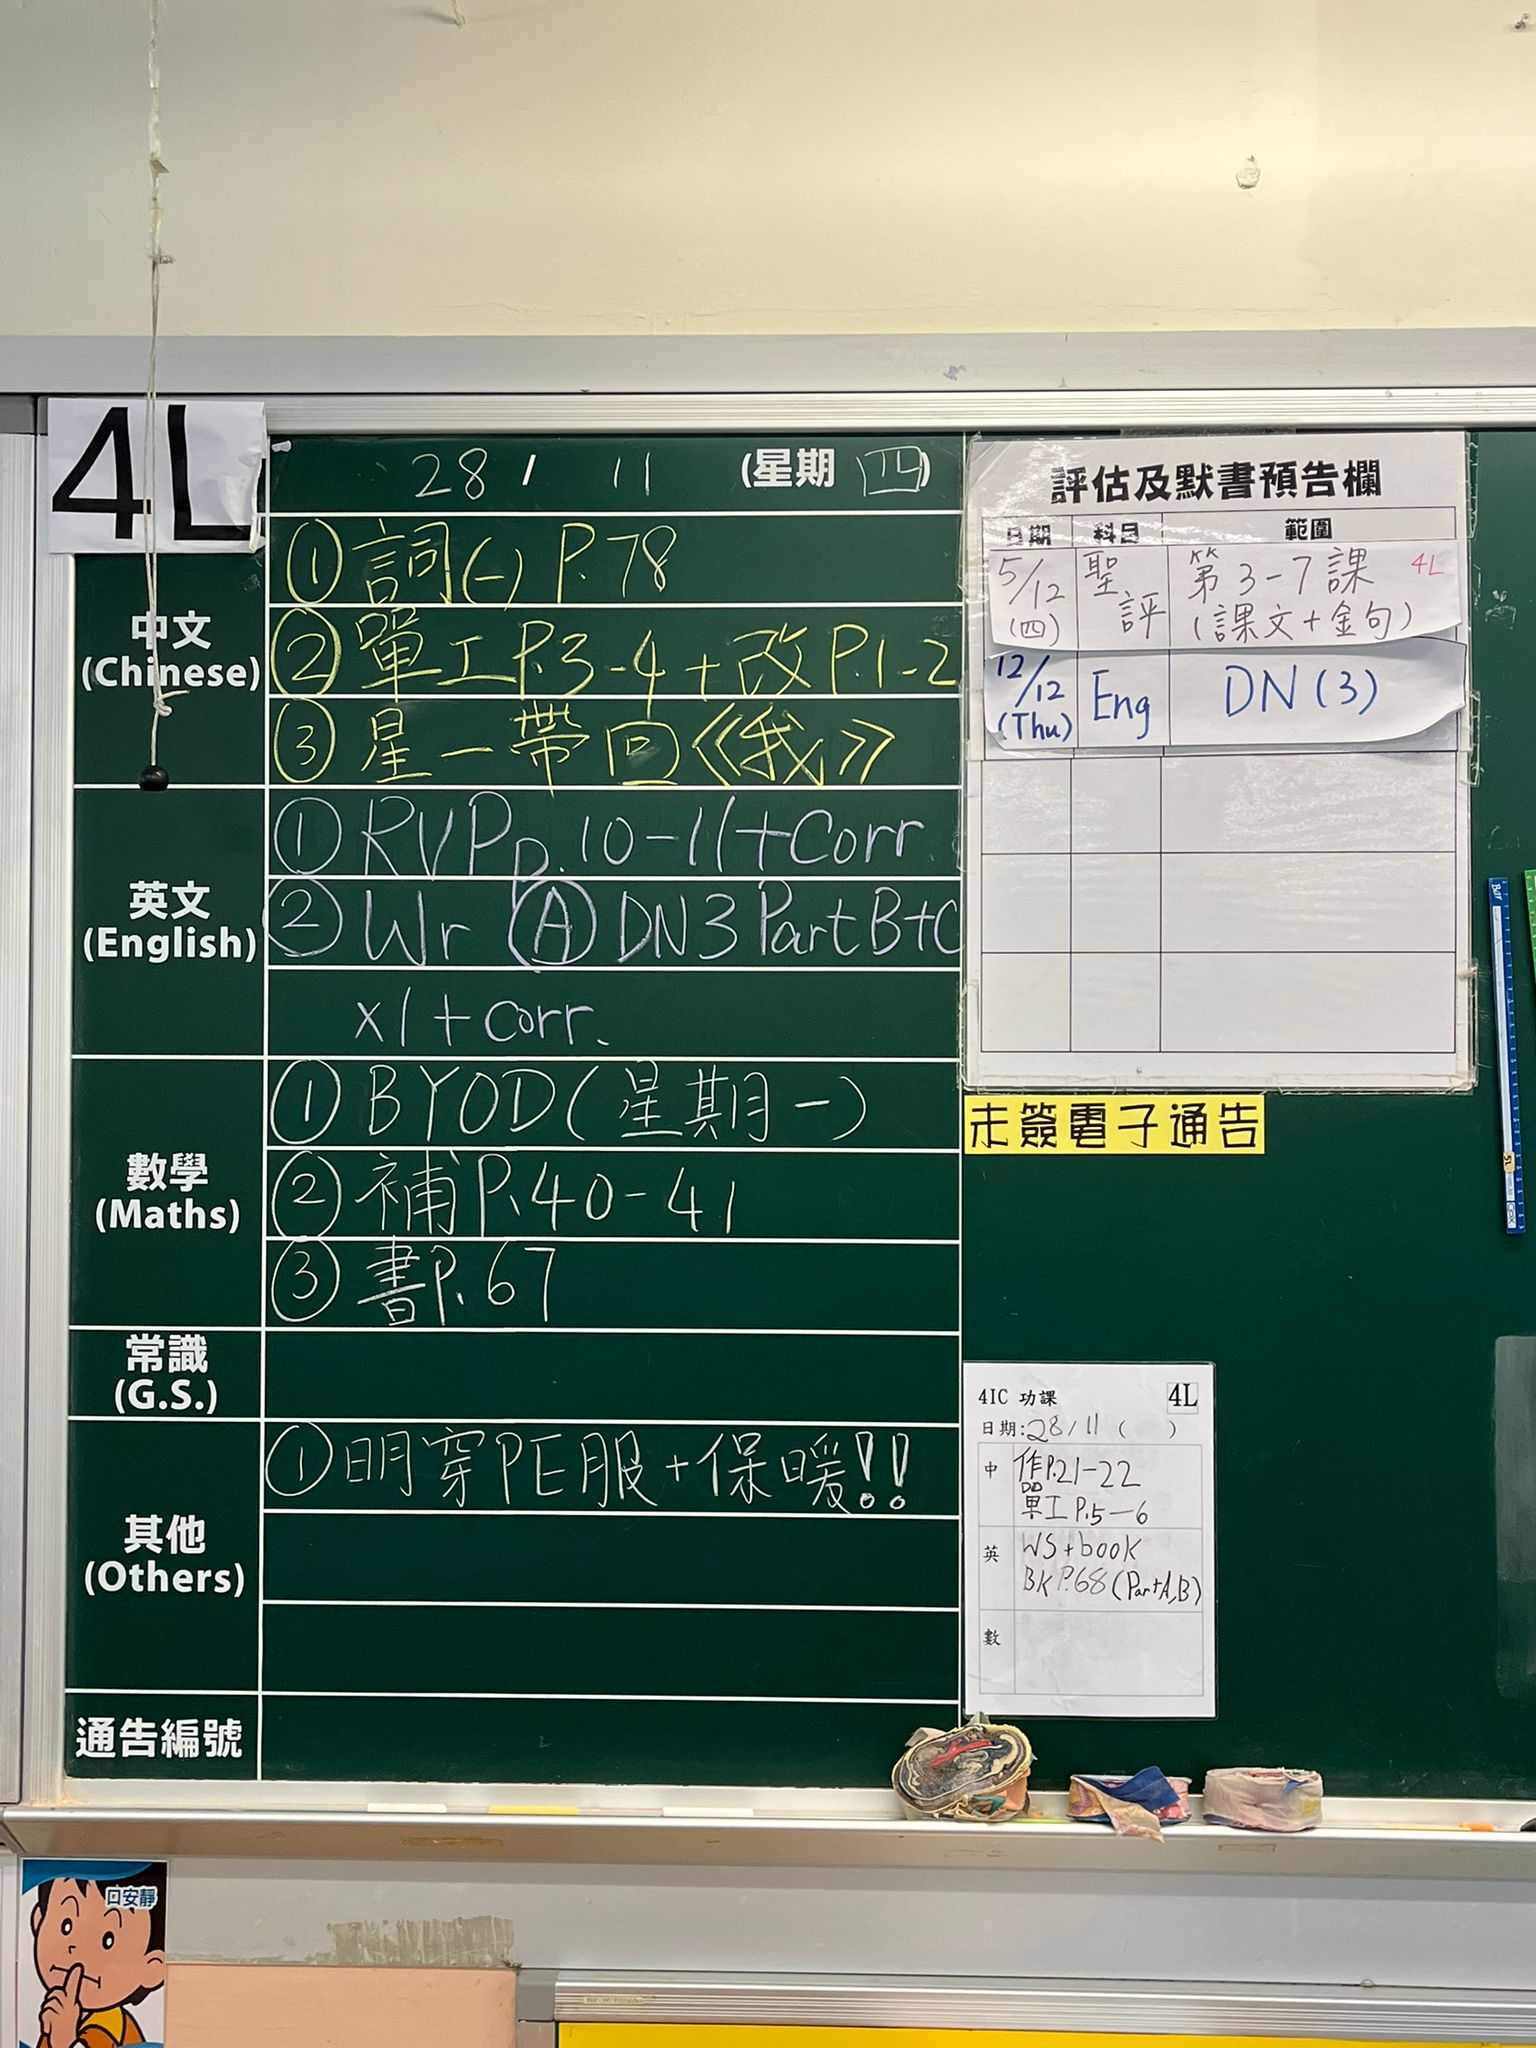 4L
28 / 11 (星期四)
中文
(Chinese)
① 詞(一) P.78
② 單工P.3-4+改P.1-2
③ 星一帶回《我》
英文
(English)
① RVP p.10-11+Corr
② Wr Ⓐ DN3 Part B+C
x1+corr.
數學
(Maths)
① BYOD(星期一)
② 補P.40-41
③ 書P.67
常識
(G.S.)
其他
(Others)
① 明穿PE服+保暖!!
通告編號
評估及默書預告欄
日期 科目 範圍
5/12 (四) 聖評 第3-7課 (課文+金句) 4L
12/12 (Thu) Eng DN(3)
未簽電子通告
4IC 功課 4L
日期:28/11 ( )
中 作P.21-22
單工P.5-6
英 WS+book
BK P.68 (Part A,B)
數
口安靜